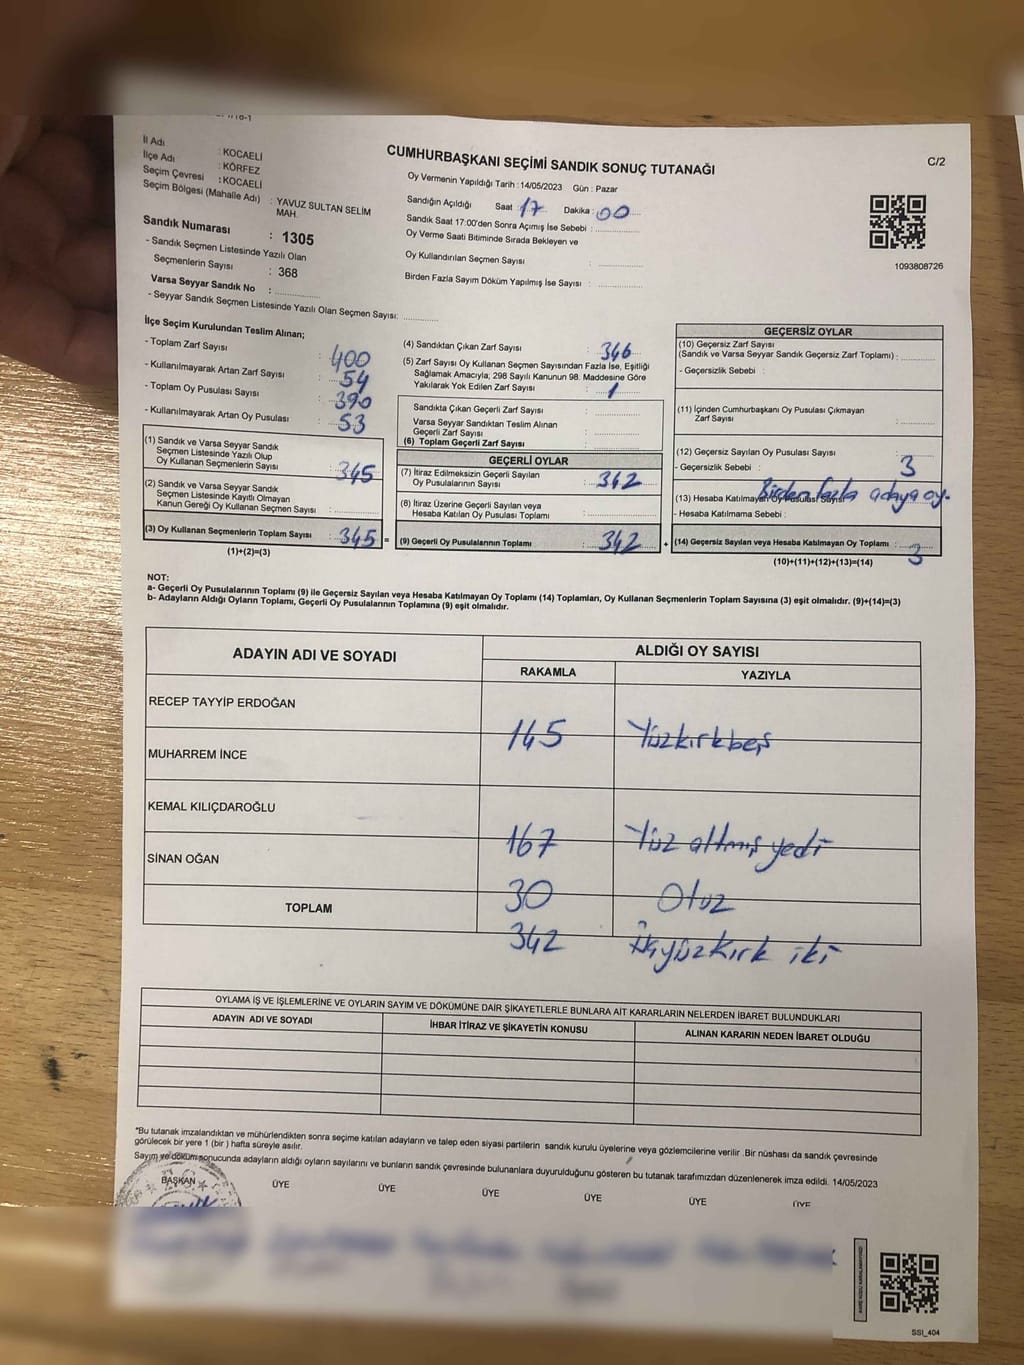 CUMHURBAŞKANI SEÇİMİ SANDIK SONUÇ TUTANAĞI
C/2
İl Adı : KOCAELİ
İlçe Adı : KÖRFEZ
Seçim Çevresi : KOCAELİ
Seçim Bölgesi (Mahalle Adı) : YAVUZ SULTAN SELİM
MAH.
Sandık Numarası : 1305
- Sandık Seçmen Listesinde Yazılı Olan
Seçmenlerin Sayısı : 368
Varsa Seyyar Sandık No :
- Seyyar Sandık Seçmen Listesinde Yazılı Olan Seçmen Sayısı:
Oy Vermenin Yapıldığı Tarih : 14/05/2023 Gün : Pazar
Sandığın Açıldığı Saat 17 Dakika : 00
Sandık Saat 17:00'den Sonra Açımış İse Sebebi :
Oy Verme Saati Bitiminde Sırada Bekleyen ve
Oy Kullandırılan Seçmen Sayısı :
Birden Fazla Sayım Döküm Yapılmış İse Sayısı :
1093808726
İlçe Seçim Kurulundan Teslim Alınan;
- Toplam Zarf Sayısı : 400
- Kullanılmayarak Artan Zarf Sayısı : 54
- Toplam Oy Pusulası Sayısı : 390
- Kullanılmayarak Artan Oy Pusulası : 53
(1) Sandık ve Varsa Seyyar Sandık
Seçmen Listesinde Yazılı Olup
Oy Kullanan Seçmenlerin Sayısı : 345
(2) Sandık ve Varsa Seyyar Sandık
Seçmen Listesinde Kayıtlı Olmayan
Kanun Gereği Oy Kullanan Seçmen Sayısı :
(3) Oy Kullanan Seçmenlerin Toplam Sayısı : 345 =
(1)+(2)=(3)
(4) Sandıktan Çıkan Zarf Sayısı : 346
(5) Zarf Sayısı Oy Kullanan Seçmen Sayısından Fazla İse, Eşitliği
Sağlamak Amacıyla; 298 Sayılı Kanunun 98. Maddesine Göre
Yakılarak Yok Edilen Zarf Sayısı : 1
Sandıkta Çıkan Geçerli Zarf Sayısı :
Varsa Seyyar Sandıktan Teslim Alınan
Geçerli Zarf Sayısı :
(6) Toplam Geçerli Zarf Sayısı :
GEÇERLİ OYLAR
(7) İtiraz Edilmeksizin Geçerli Sayılan
Oy Pusulalarının Sayısı : 342
(8) İtiraz Üzerine Geçerli Sayılan veya
Hesaba Katılan Oy Pusulası Toplamı :
(9) Geçerli Oy Pusulalarının Toplamı : 342 +
GEÇERSİZ OYLAR
(10) Geçersiz Zarf Sayısı
(Sandık ve Varsa Seyyar Sandık Geçersiz Zarf Toplamı) :
- Geçersizlik Sebebi :
(11) İçinden Cumhurbaşkanı Oy Pusulası Çıkmayan
Zarf Sayısı :
(12) Geçersiz Sayılan Oy Pusulası Sayısı : 3
- Geçersizlik Sebebi :
Birden fazla adaya oy.
(13) Hesaba Katılmayan Oy Pusulası Sayısı
- Hesaba Katılmama Sebebi :
(14) Geçersiz Sayılan veya Hesaba Katılmayan Oy Toplamı : 3
(10)+(11)+(12)+(13)=(14)
NOT:
a- Geçerli Oy Pusulalarının Toplamı (9) ile Geçersiz Sayılan veya Hesaba Katılmayan Oy Toplamı (14) Toplamları, Oy Kullanan Seçmenlerin Toplam Sayısına (3) eşit olmalıdır. (9)+(14)=(3)
b- Adayların Aldığı Oyların Toplamı, Geçerli Oy Pusulalarının Toplamına (9) eşit olmalıdır.
ADAYIN ADI VE SOYADI
ALDIĞI OY SAYISI
RAKAMLA YAZIYLA
RECEP TAYYİP ERDOĞAN
145 Yüzkırkbeş
MUHARREM İNCE
KEMAL KILIÇDAROĞLU
167 Yüz altmış yedi
SİNAN OĞAN
30 Otuz
TOPLAM
342 Üçyüzkırk iki
OYLAMA İŞ VE İŞLEMLERİNE VE OYLARIN SAYIM VE DÖKÜMÜNE DAİR ŞİKAYETLERLE BUNLARA AİT KARARLARIN NELERDEN İBARET BULUNDUKLARI
ADAYIN ADI VE SOYADI İHBAR İTİRAZ VE ŞİKAYETİN KONUSU ALINAN KARARIN NEDEN İBARET OLDUĞU
*Bu tutanak imzalandıktan ve mühürlendikten sonra seçime katılan adayların ve talep eden siyasi partilerin sandık kurulu üyelerine veya gözlemcilerine verilir .Bir nüshası da sandık çevresinde
görülecek bir yere 1 (bir ) hafta süreyle asılır.
Sayım ve döküm sonucunda adayların aldığı oyların sayılarını ve bunların sandık çevresinde bulunanlara duyurulduğunu gösteren bu tutanak tarafımızdan düzenlenerek imza edildi. 14/05/2023
BAŞKAN ÜYE ÜYE ÜYE ÜYE ÜYE ÜYE
SSI_404